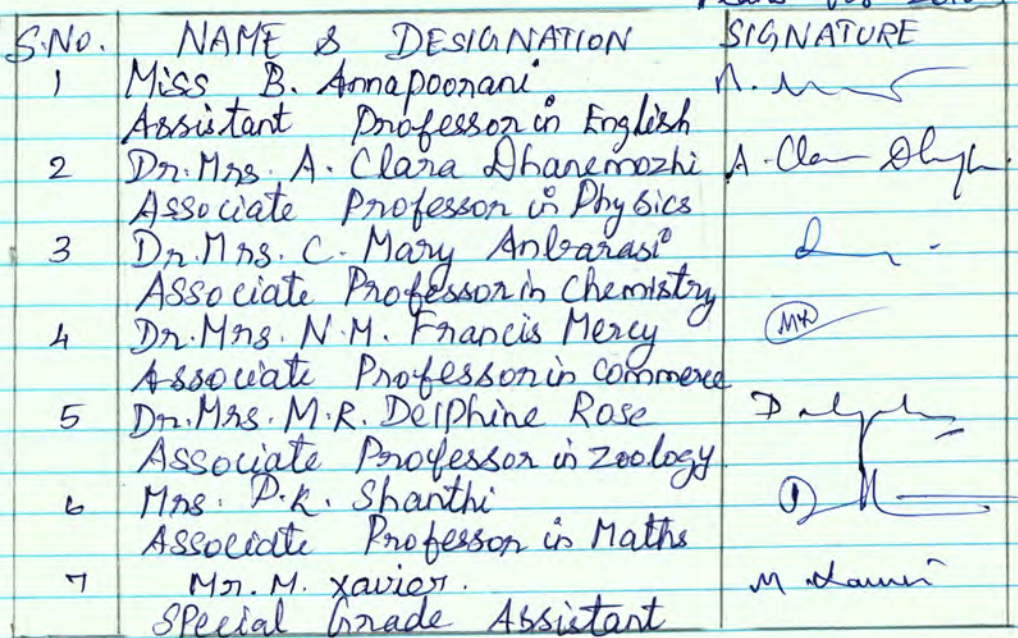 S.No. NAME & DESIGNATION SIGNATURE
1 Miss B. Annapoorani
Assistant Professor in English
2 Dr.Mrs. A. Clara Dhanemozhi A. Clara
Associate Professor in Physics
3 Dr.Mrs. C. Mary Anbarasi
Associate Professor in Chemistry
4 Dr.Mrs. N.M. Francis Mercy
Associate Professor in Commerce
5 Dr.Mrs. M.R. Delphine Rose
Associate Professor in Zoology
6 Mrs. P.K. Shanthi
Associate Professor in Maths
7 Mr. M. Xavier. M Xavier
Special Grade Assistant